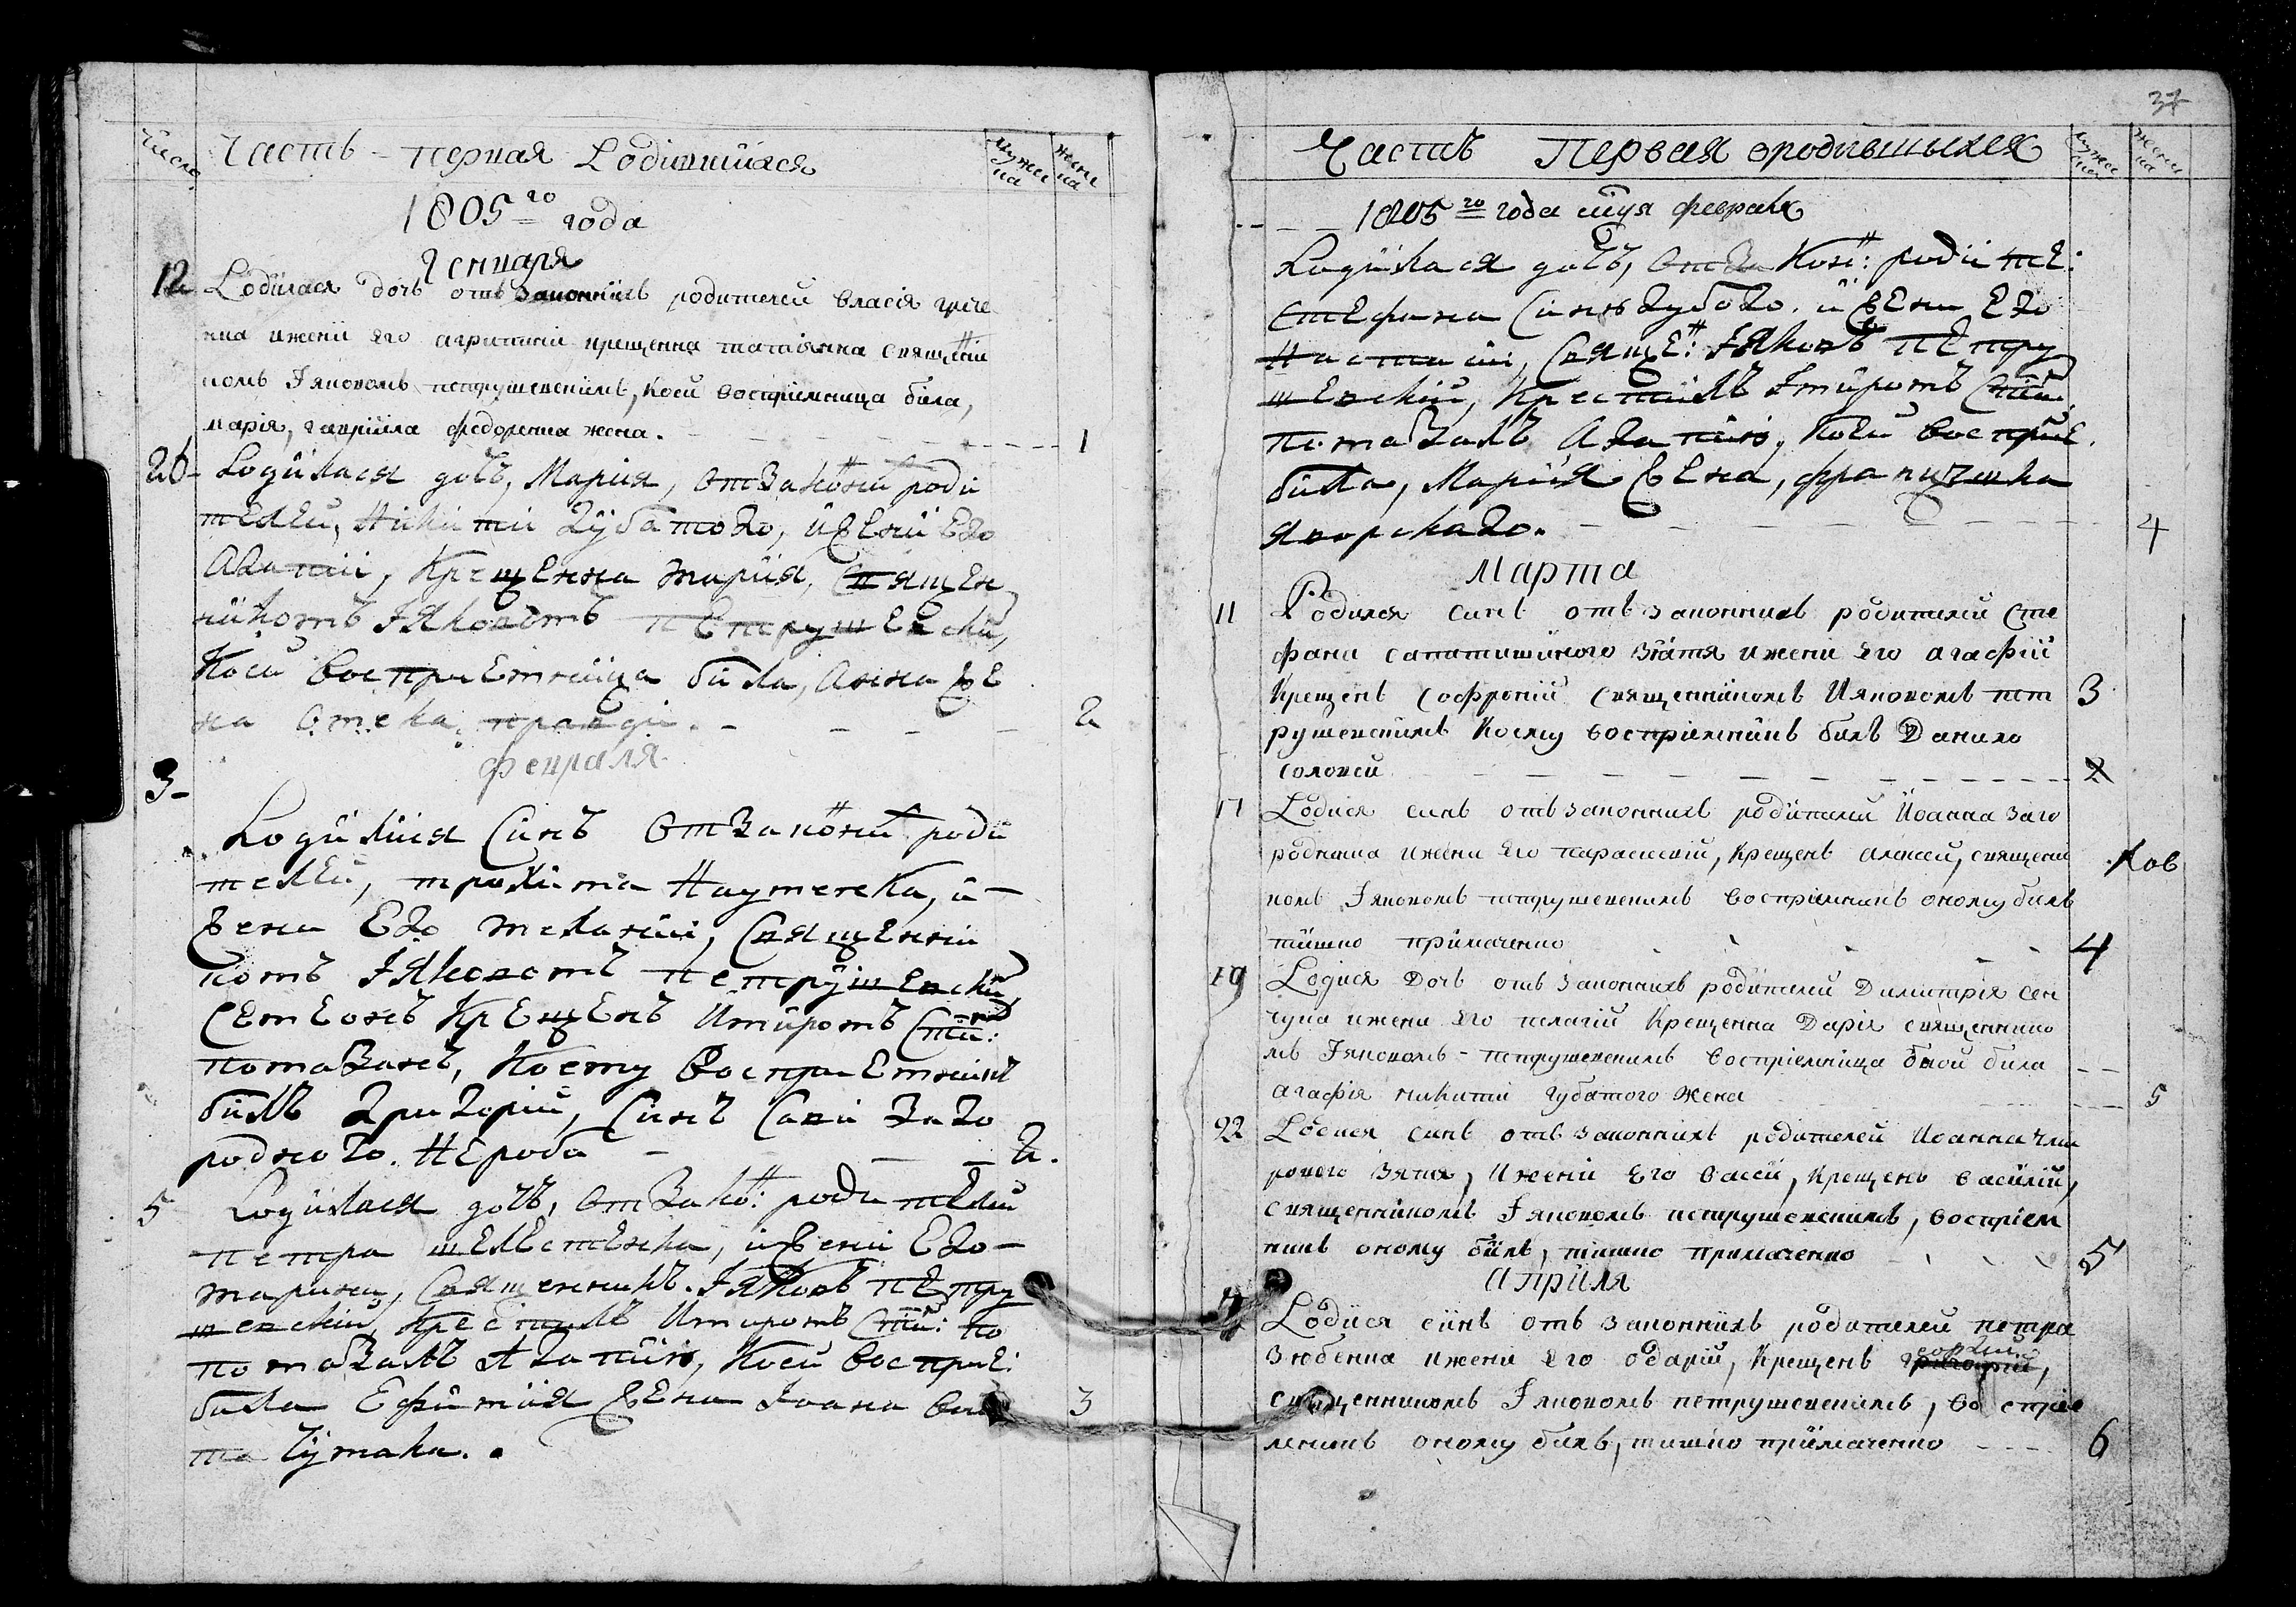 Число
Часть первая Родившихся
мужеска
женска
1805го года
Генваря
12 Родилася дочь отъ законнихъ родителей власія грече
нка ижени его агрипини крещенна татіянна священни
комъ Іяковомъ петрушевскимъ, коей воспріемница била,
марія, гавриила федоренка жена. 1
26 Родилася дочъ, Мария, отзаконни роди
телей, Никити Зубатого, ижени его
Агапии, Крещенна мария, священ
никомъ Іяковомъ петрушевски,
коей восприемница била, Анна же
на 2
февраля
3
Родился Синъ отзаконни роди
телей, трохима Наумечека, и
жени Его меланий, Священни
комъ Іяковомъ петрушевски
Семеонъ Крещенъ имиромъ Стим:
помазанъ, коему восприемникъ
билъ григорий, Синъ Сави Заго
родного. Нероба 2.
5 Родилася дочъ, отзако: родителей
петра шелестенка, ижени Его
марини, Священникъ Іяковъ петру
шевский, крестилъ имиромъ Стим: по
помазалъ Агапию, коей восприе:
била Ефимия жена Іоана
Чумака.
37
Часть Первая ородившыхся
мужеска
женска
1805го года мця февраля
Родилася дочъ, отзакон: родите:
Стефана Синъ Зубого. ижени Его
Настасии, Свяще: Іяковъ петру
шевский, крестилъ Имиромъ Стим
помазалъ Агапию, коей восприе.
била, Мария жена,
яворскаго. 4
Марта
11 Родился синъ отъ законнихъ родителей Сте
фана зятя ижени его агафий
крещенъ Софроний священникомъ Ияковомъ пет 3
рушевскимъ коему воспріемникъ билъ Данило
соловей 2
17 Родися синъ отъ законнихъ родителей Иоанна Заго
роднина ижени его параскевий, крещенъ алексей, священи
комъ Іяковомъ петрушевскимъ воспріемникъ оному билъ
тишко примаченко 4
19 Родися дочь отъ законнихъ родителей Димитрія сен
чука ижени его пелагий крещенна Дарія священнико
мъ Іяковомъ петрушевскимъ воспріемница оной била
агафія никити губатого жена 5
22 Родися синъ отъ законнихъ родителей Иоанна
рового зятя, ижени его васси, крещенъ василий,
священникомъ Іяковомъ петрушевскимъ, воспріем
никъ оному билъ, тишко примаченко 5
Априля
Родися синъ отъ законнихъ родителей петра
Зюбенка ижени его одарий, крещенъ григорий,
священникомъ Іяковомъ петрушевскимъ, во спріе
мникъ оному билъ, тишко примаченко 6